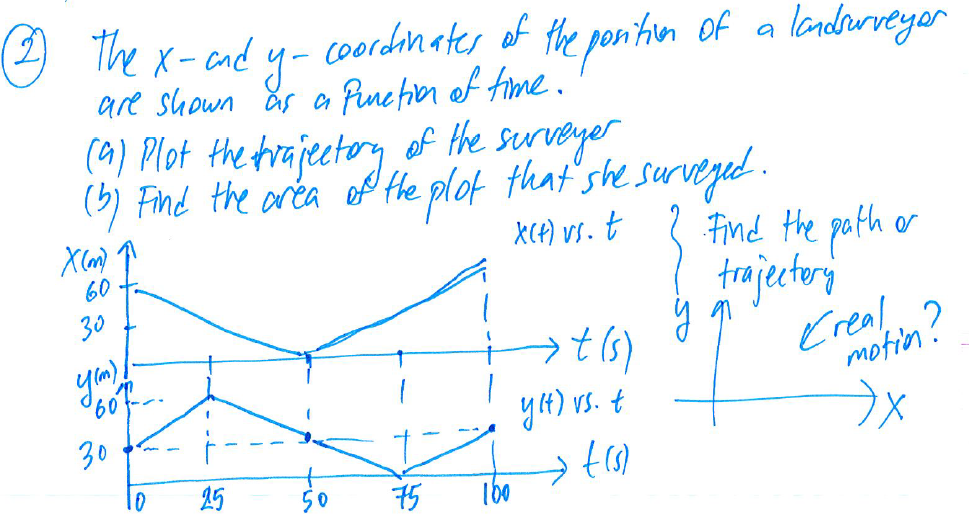 2 The x- and y- coordinates of the position of a landsurveyor
are shown as a function of time.
(a) Plot the trajectory of the surveyer
(b) Find the area of the plot that she surveyed.
x(t) vs. t
Find the path or
trajectory
X(m)
60
30
t(s)
y
real
motion?
x
y(m)
60
30
y(t) vs. t
t(s)
0 25 50 75 100